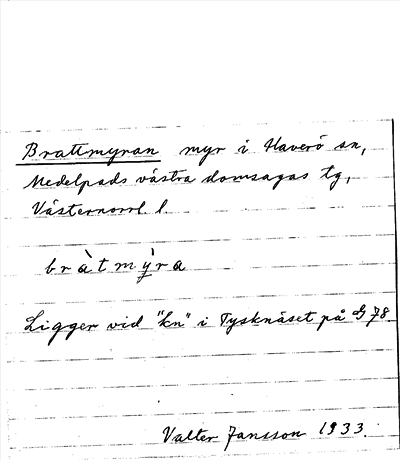 Brattmyran myr i Haverö sn,
Medelpads västra domsagas tg,
Västernorrl. l.
bràtmỳra
Ligger vid "kn" i Tysknäset på G 78.
Valter Jansson 1933.